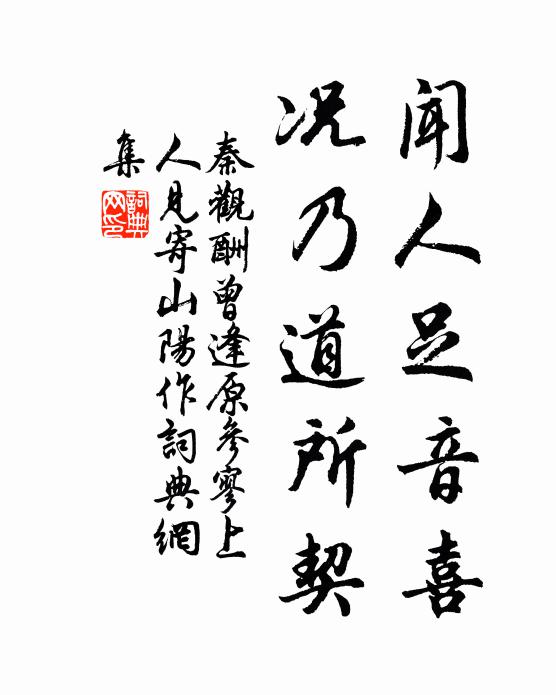 闻人足音喜
况乃道所契
秦觀酬曾逢原參寥上
人見寄山陽作詞典網
集
詞典网印